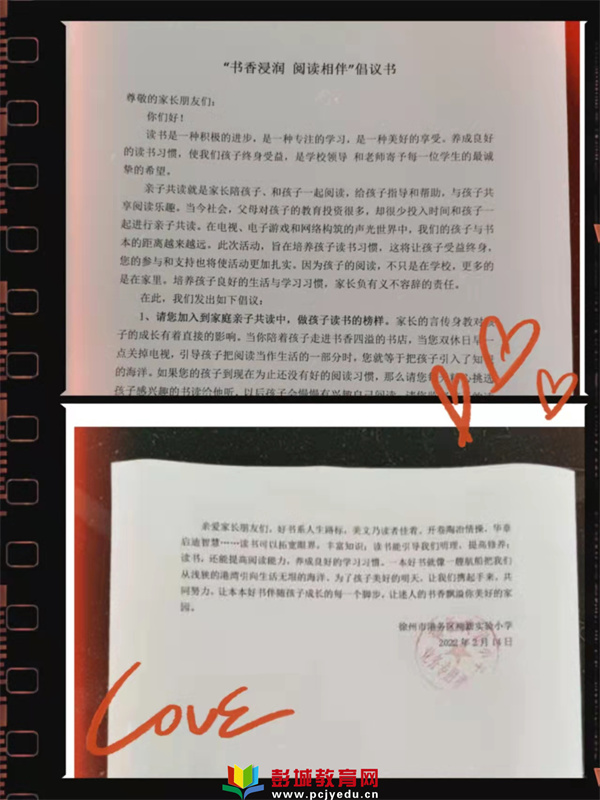 “书香浸润 阅读相伴”倡议书
尊敬的家长朋友们：
你们好！
读书是一种积极的进步，是一种专注的学习，是一种美好的享受。养成良好
的读书习惯，使我们孩子终身受益，是学校领导 和老师寄予每一位学生的最诚
挚的希望。
亲子共读就是家长陪孩子、和孩子一起阅读，给孩子指导和帮助，与孩子共
享阅读乐趣。当今社会，父母对孩子的教育投资很多，却很少投入时间和孩子一
起进行亲子共读。在电视、电子游戏和网络构筑的声光世界中，我们的孩子与书
本的距离越来越远。此次活动，旨在培养孩子读书习惯，这将让孩子受益终身，
您的参与和支持也将使活动更加扎实。因为孩子的阅读，不只是在学校，更多的
是在家里。培养孩子良好的生活与学习习惯，家长负有义不容辞的责任。
在此，我们发出如下倡议：
1、请您加入到家庭亲子共读中，做孩子读书的榜样。家长的言传身教对孩
子的成长有着直接的影响。当你陪着孩子走进书香四溢的书店，当您双休日早一
点关掉电视，引导孩子把阅读当作生活的一部分时，您就等于把孩子引入了知识
的海洋。如果您的孩子到现在为止还没有好的阅读习惯，那么请您 挑选
孩子感兴趣的书读给他听，以后孩子会慢慢有兴趣自己阅读
亲爱家长朋友们，好书系人生路标，美文乃读者佳肴。开卷陶冶情操，华章
启迪智慧……读书可以拓宽眼界，丰富知识；读书能引导我们明理，提高修养；
读书，还能提高阅读能力，养成良好的学习习惯。一本好书就像一艘航船把我们
从浅狭的港湾引向生活无垠的海洋。为了孩子美好的明天，让我们携起手来，共
同努力，让本本好书伴随孩子成长的每一个脚步，让迷人的书香飘溢你美好的家
园。
徐州市港务区 实验小学
2022 年 2 月 14 日
LOVE
彭城教育网
www.pcjyedu.cn